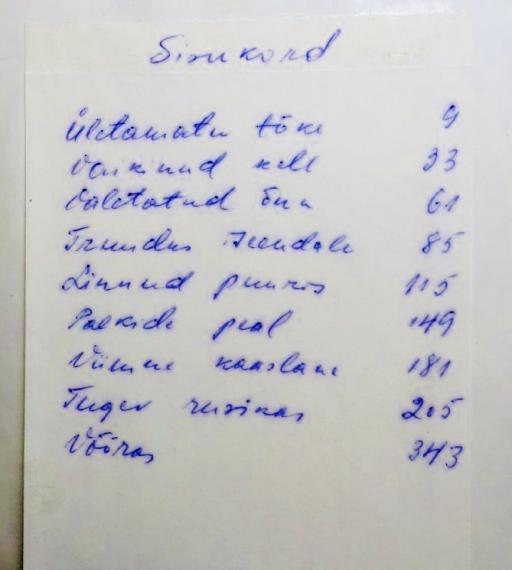 Sisukord
Ületamatu tõke 9
Vaikinud kell 33
Välditud õnn 61
Truudus iseendale 85
Linnud puuris 115
Palkide peal 149
Viimne kaaslane 181
Tugev rusikas 205
Võõras 343